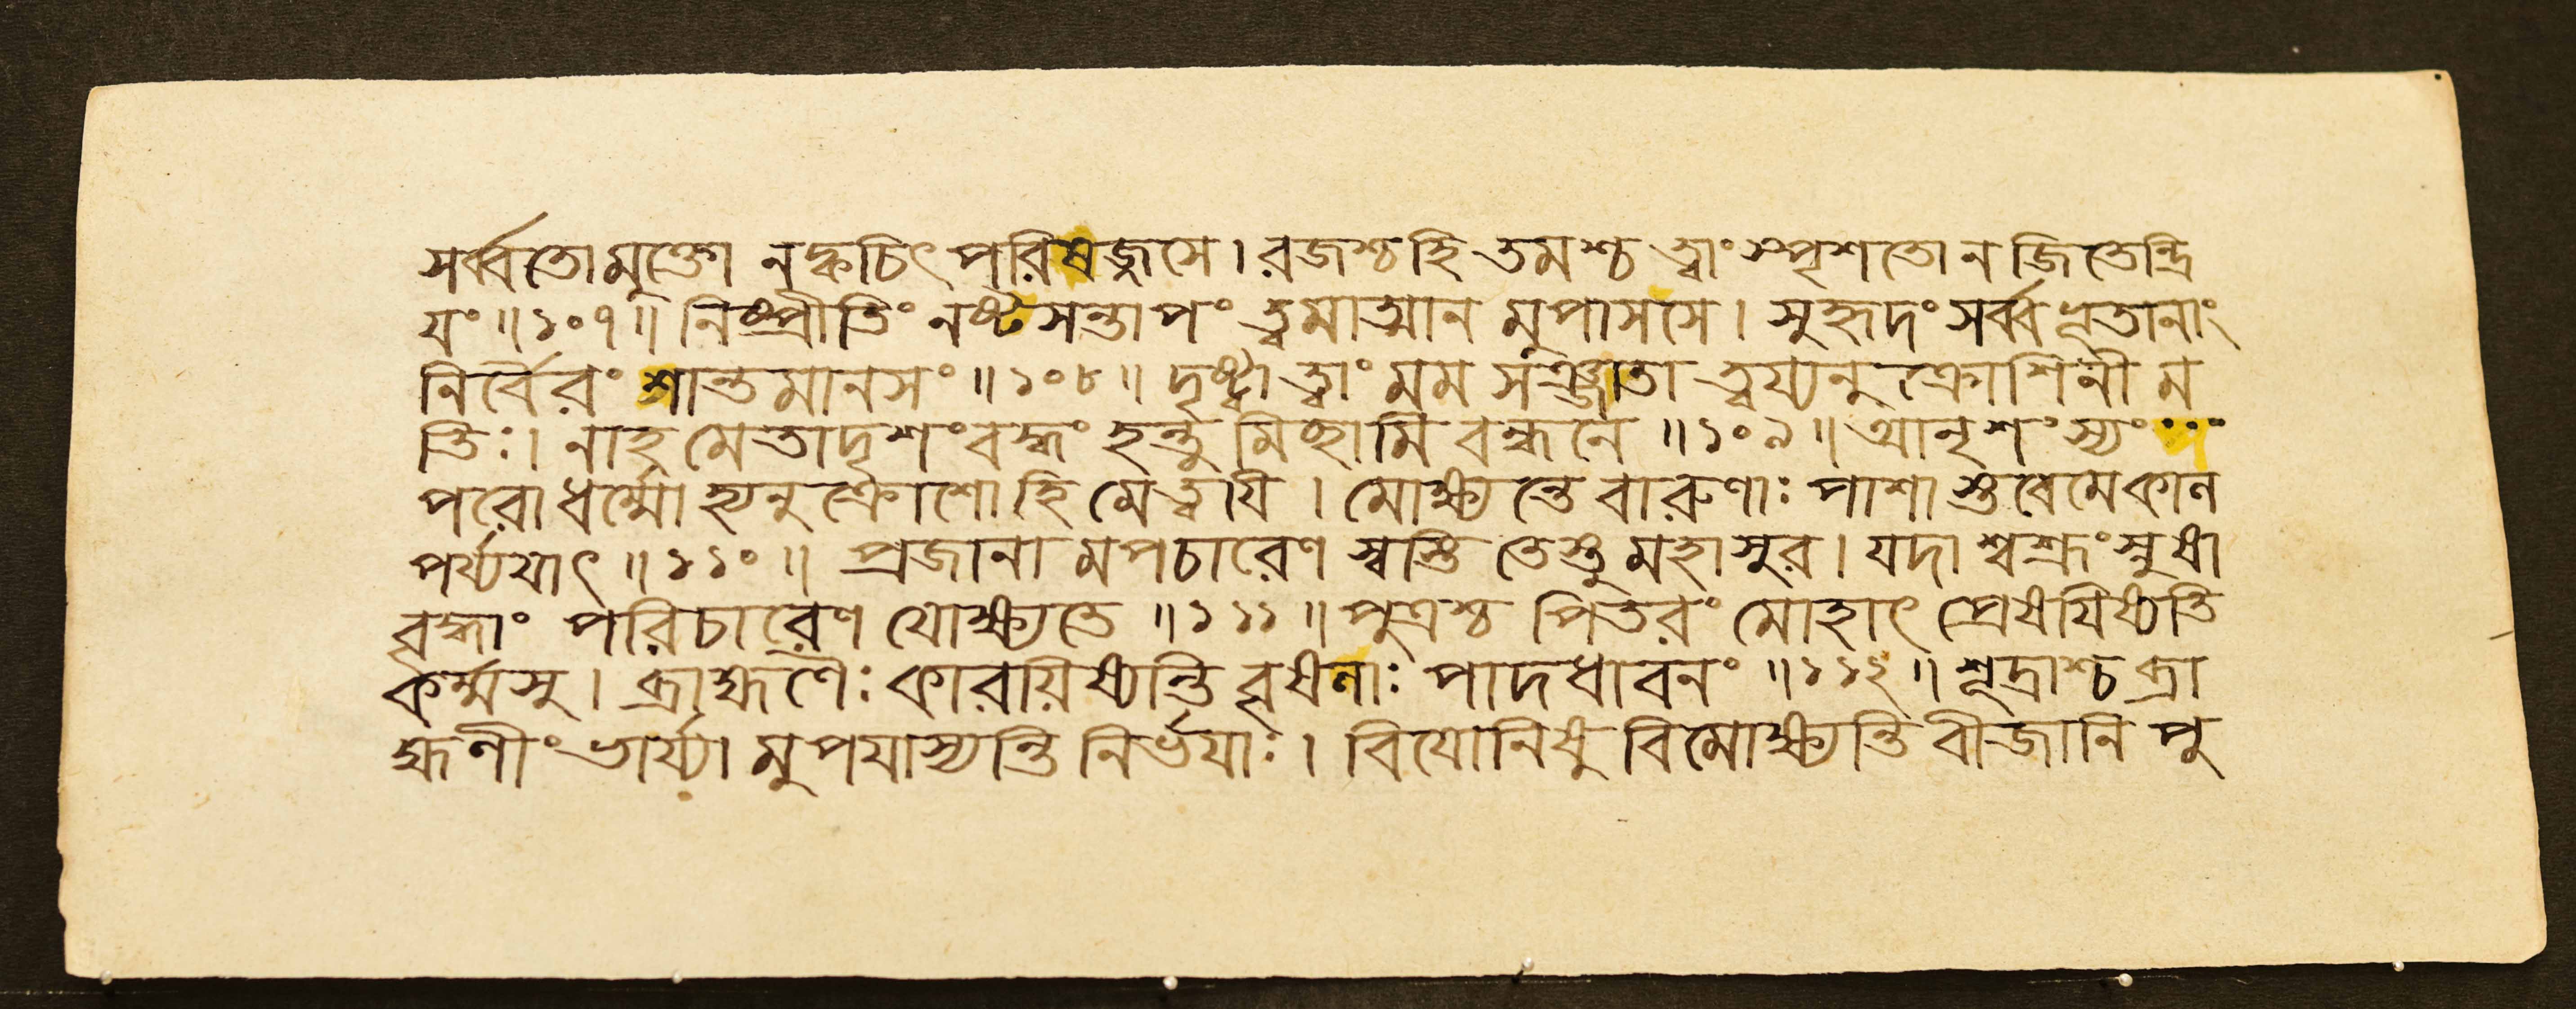 সর্ব্বতোমুক্তো ন ক্বচিৎ পরিষজ্জসে। রজশ্চ হি তমশ্চ ত্বাং স্পৃশতো ন জিতেন্দ্রি
যং॥১০৭॥ নিষ্প্রীতিং নষ্টসন্তাপং ত্বমাত্মান মুপাসসে। সুহৃদং সর্ব্বভূতানাং
নির্বৈরং শান্তমানসং॥১০৮॥ দৃষ্ট্বা ত্বাং মম সঞ্জাতা ত্বয্যনুক্রোশিনী ম
তিঃ। নাহ মেতাদৃশং বদ্ধং হন্তু মিচ্ছামি বন্ধনে॥১০৯॥ আনৃশংস্যং
পরো ধর্ম্মো হ্যনুক্রোশো হি মে ত্বয়ি। মোক্ষ্যন্তে বারুণাঃ পাশা স্তবেমে কাল
পর্য্যযাৎ॥১১০॥ প্রজানা মপচারেণ স্বস্তি তেস্তু মহাসুর। যদা শ্বশ্রূং স্নুষা
বৃদ্ধাং পরিচারেণ যোক্ষ্যতে॥১১১॥ পুত্রশ্চ পিতরং মোহাৎ প্রেষযিষ্যতি
কর্ম্মসু। ব্রাহ্মণৈঃ কারয়িষ্যন্তি বৃষলাঃ পাদধাবনং॥১১২॥ শূদ্রাশ্চ ব্রা
হ্মণীং ভার্য্যা মুপযাস্যন্তি নির্ভযাঃ। বিযোনিষু বিমোক্ষ্যন্তি বীজানি পু